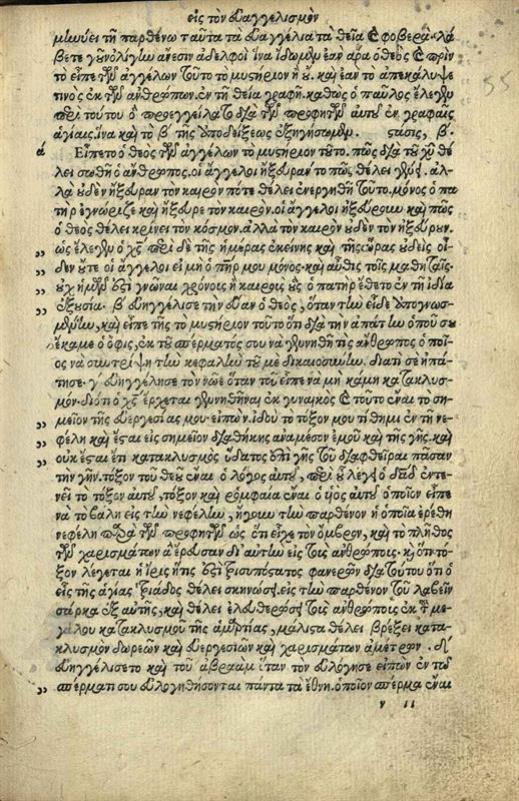 εἰς τὸν εὐαγγελισμὸν
μηνύει τῇ παρθένῳ ταῦτα τὰ εὐαγγέλια τὰ θεῖα καὶ φοβερά. λά
βετε γοῦν ὀλίγην ἄνεσιν ἀδελφοὶ ἵνα ἰδωμεν ἐὰν ἄρα ὁ θεὸς καὶ πρὶν
τὸ εἶπε τῶν ἀγγέλων τοῦτο τὸ μυστήριον ἢ οὔ. καὶ ἐὰν τὸ ἀπεκάλυψε
τινὸς ἐκ τῶν ἀνθρώπων. ἐν τῇ θεία γραφῇ. καθὼς ὁ παῦλος ἔλεγεν
περὶ τούτου ὃ προεγγείλατο διὰ τῶν προφητῶν αὐτοῦ ἐν γραφαῖς
ἁγίαις. ἵνα καὶ τὸ β τῆς ὑποδείξεως ἐξηγήσωμεν. στάσις, β.
ά Εἶπε το ὁ θεὸς τῶν ἀγγέλων τὸ μυστήριον τοῦτο. πῶς διὰ τοῦ υἱοῦ θέ
λει σωθῆ ὁ ἄνθρωπος. οἱ ἄγγελοι ἤξευραν το πῶς θέλει γένῃ. ἀλ
λὰ οὐδὲν ἤξευραν τὸν καιρὸν πότε θέλει ἐνεργηθῆ τοῦτο. μόνος ὁ πα
τὴρ ἐγνώριζε καὶ ἤξευρε τὸν καιρὸν. οἱ ἄγγελοι ἤξευρουν καὶ πῶς
ὁ θεὸς θέλει κρίνει τὸν κόσμον. ἀλλὰ τὸν καιρὸν οὐδὲν τὸν ἤξευρον.
ὡς ἔλεγεν ὁ χς περὶ δὲ τῆς ἡμέρας ἐκείνης καὶ τῆς ὥρας οὐδεὶς οἶ
δεν οὔτε οἱ ἄγγελοι εἰ μὴ ὁ πηρ μου μόνος. καὶ αὖθις τοῖς μαθηταῖς.
οὐχ ὑμῶν ἐστὶ γνῶναι χρόνοις ἢ καιροὺς οὓς ὁ πατὴρ ἔθετο ἐν τῇ ἰδία
ἐξουσία. β εὐηγγέλισε τὴν εὔαν ὁ θεὸς, ὅταν τὴν εἶδε
καὶ εἶπε της τὸ μυστήριον τοῦτο ὅτι διὰ τὴν ἀπάτην ὁποῦ σου
ἔκαμε ὁ ὄφις, ἐκ τοῦ σπέρματός σου νὰ γεννηθῆ τις ἄνθρωπος ὁ ποῖ
ος νὰ συντρίψη τὴν κεφαλὴν τοῦ μὲ δικαιοσύνην. διατὶ σὲ ἠπά
τησε. γ εὐηγγέλησε τὸν νῶε ὅταν τοῦ εἶπε νὰ μὴ κάμη κατακλυσ
μὸν. διότι ὁ χς ἔρχεται γεννηθῆναι ἐκ γυναικὸς καὶ τοῦτο εἶναι τὸ ση
μεῖον τῆς εὐεργεσίας μου. εἰπὼν. ἰδοὺ τὸ τόξον μου τίθημι ἐν τῇ νε
φέλη καὶ ἔσται εἰς σημεῖον διαθήκης ἀναμέσον ἐμοῦ καὶ τῆς γῆς. καὶ
οὐκ ἔσται ἔτι κατακλυσμὸς ὕδατος ἐπὶ γῆς τοῦ διαφθεῖραι πᾶσαν
τὴν γῆν. τόξον τοῦ θεοῦ εἶναι ὁ λόγος αὐτοῦ, περὶ οὗ λέγει ὁ δαδ ἐντε
νεῖ τὸ τόξον αὐτοῦ, τόξον καὶ ρομφαία εἶναι ὁ υἱὸς αὐτοῦ ὁποῖον εἶπε
νὰ το βάλη εἰς τὴν νεφέλην, ἤγουν τὴν παρθένον ἡ ὁποία ἐρέθη
νεφέλη παρὰ τῶν προφητῶν ὡς ὅτι εἶχε τὸν ὄμβρον, καὶ τὸ πλῆθος
τῶν χαρισμάτων ἃ ἔρευσαν δι' αὐτὴν εἰς τοὺς ἀνθρώποις. καὶ ὅτι τό
ξον λέγεται ἡ ἶρις ἥτις ἐστὶ τρισυπόστατος φανερῶν διὰ τούτου ὅτι ὁ
εἷς τῆς ἁγίας τριάδος θέλει σκηνώσῃ εἰς τὴν παρθένον τοῦ λαβεῖν
σάρκα ἐξ αὐτῆς, καὶ θέλει ἐλευθερώσῃ τοὺς ἀνθρώπους ἐκ τοῦ με
γάλου κατακλυσμοῦ τῆς ἁμαρτίας, μάλιστα θέλει βρέξει κατα
κλυσμὸν δωρεῶν καὶ εὐεργεσιῶν καὶ χαρισμάτων ἀμέτρων. δ
εὐηγγέλισε το καὶ τοῦ ἀβραὰμ ὅταν τὸν εὐλόγησε εἰπὼν ἐν τῷ
σπέρματι σου εὐλογηθήσονται πάντα τὰ ἔθνη. ὁποῖον σπέρμα εἶναι
ν ιι
55